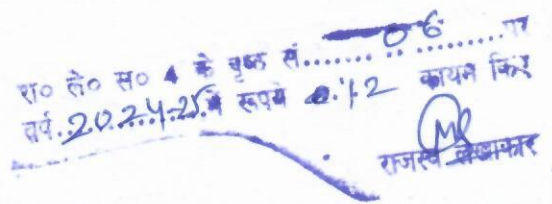 रा० ले० स० 4 के पृष्ठ सं....06....पर
वर्ष..2024-25.में रूपये 0.12 कायम किए
राजस्व लेखाकार